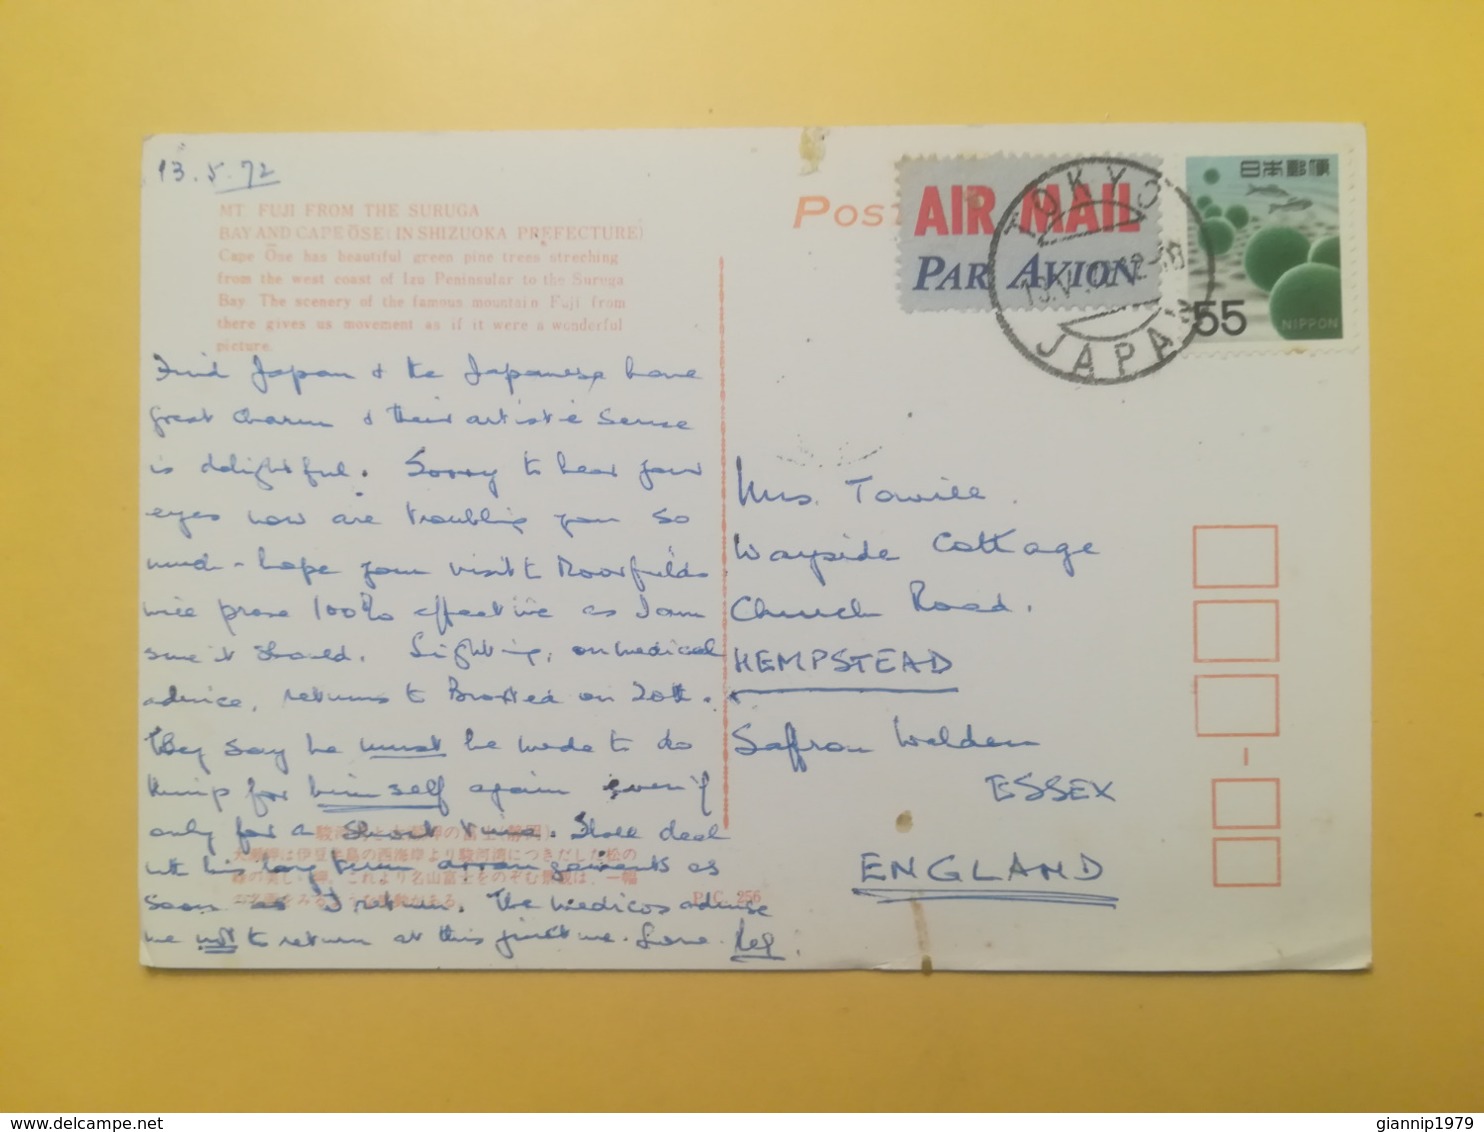 13.5.72
MT FUJI FROM THE SURUGA
BAY AND CAPE ŌSE (IN SHIZUOKA PREFECTURE)
Cape Ōse has beautiful green pine trees streeching
from the west coast of Izu Peninsular to the Suruga
Bay. The scenery of the famous mountain Fuji from
there gives us movement as if it were a wonderful
picture.
Find Japan & the Japanese have
great charm & their artistic sense
is delightful. Sorry to hear your
eyes now are troubling you so
much - hope your visit to Moorfields
will prove 100% effective as I am
sure it should. on medical
advice, returns to on 20th.
They say he must be made to do
things for himself again even if
only for a short time. Shall deal
with his long term arrangements as
soon as I return. The medicos advise
me not to return at this juncture. Love. Reg.
大瀬崎は伊豆半島の西海岸より駿河湾につきだした松の
これより名山富士をのぞむ景観は、一幅
P.C. 256
Post
AIR MAIL
PAR AVION
TOKYO
JAPAN
日本郵便
55
NIPPON
Mrs. Towill.
Wayside Cottage
Church Road.
HEMPSTEAD
Saffron Walden
ESSEX
ENGLAND
giannip1979
delcampe.net